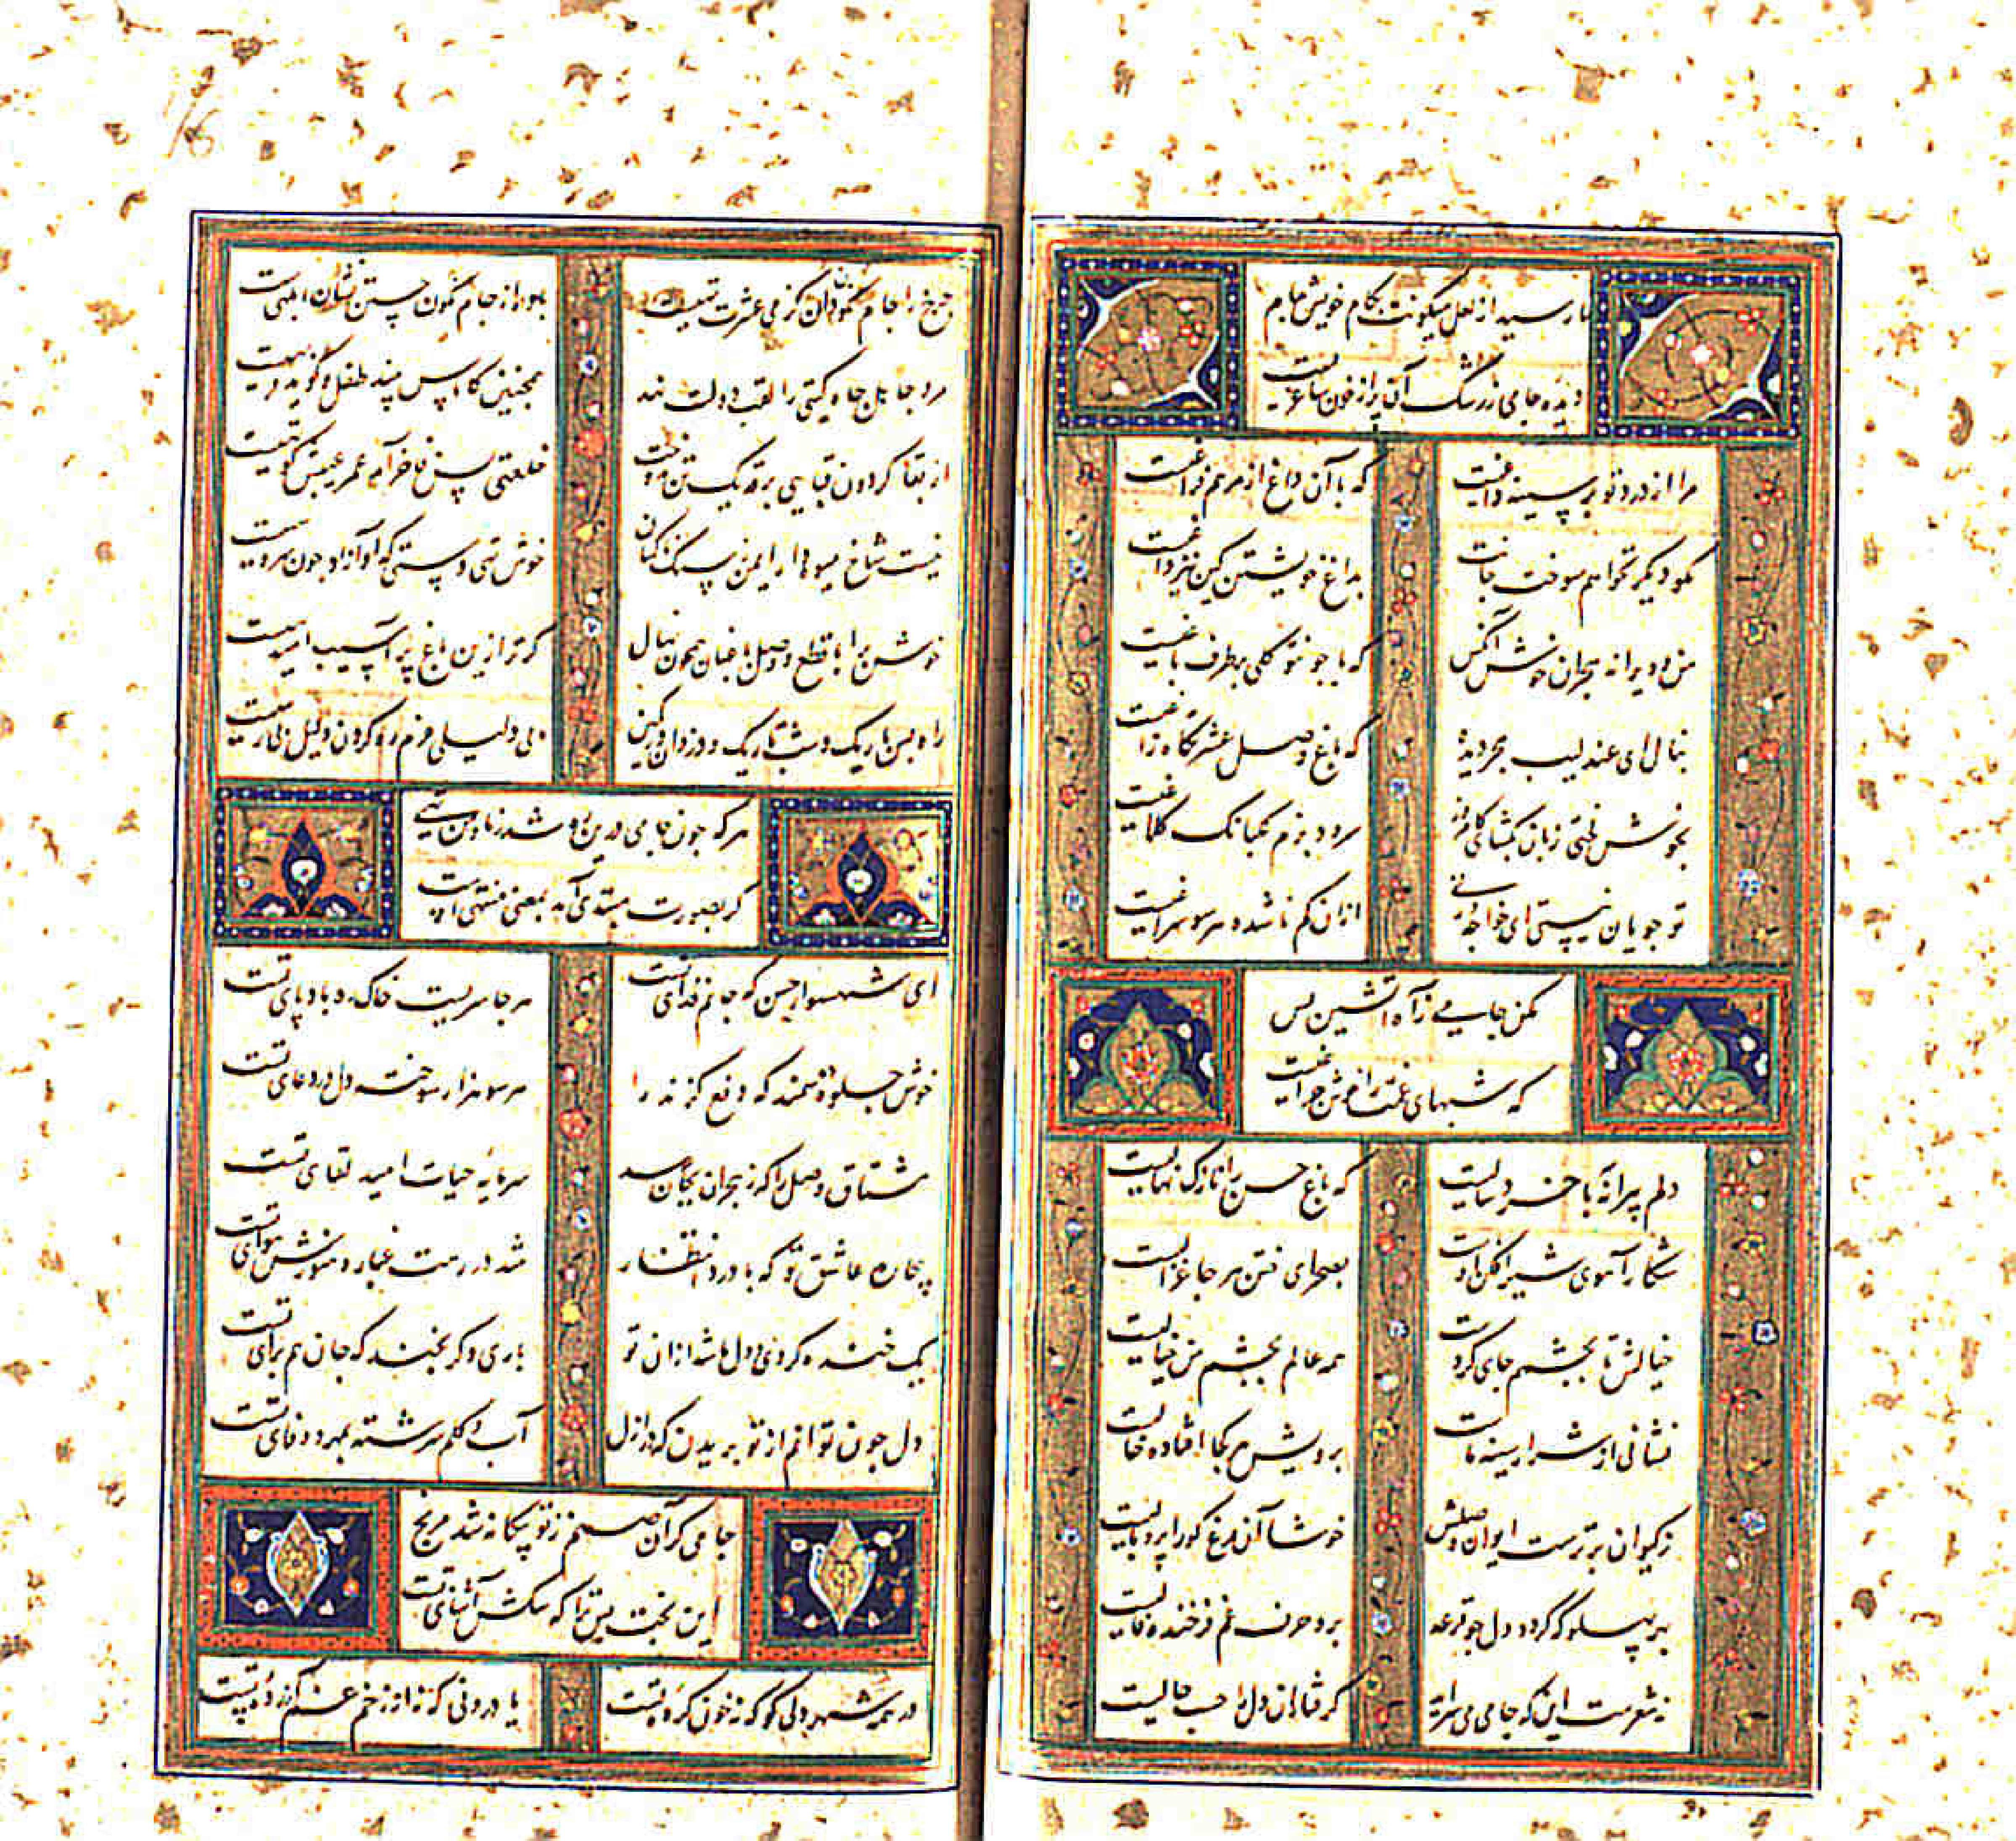 تا رسید از لعل میکونت بکام خویش جام
دیده جامی ز رشک آن پر از خون ساغریست
مرا از درد تو بر سینه داغیست
که با آن داغ از مرهم فراغیست
مگو دیگر نخواهم سوخت جانت
بداغ خویشتن کین نیز داغیست
من و ویرانه هجران خوش آنکس
که با چون تو کلی بر طرف باغیست
بنال ای عندلیب هجر دیده
که باغ وصل عشرتگاه زاغیست
سرود بزم کلبانک کلاغیست
تو جویان نیستی ای خواجه ورنی
ازان کم ناشده هر سو سراغیست
مکن جامی ز آه آتشین بس
که شبهای غمت را خوش چراغیست
دلم پیرانه با خرد سالیست
که باغ حسن را نازک نهالیست
شکار آهوی شیر افکن اوست
بصحرای ختن هر جا غزالیست
خیالش تا بچشمم جای کردست
همه عالم بچشم من خیالیست
نشانی از شرار سینه ماست
برویش هر کجا افتاده خالیست
ز کیوان برترست ایوان وصلش
خوشا آن مرغ کورا پر و بالیست
بهر پهلو که کردد دل چو قرعه
برو حرف غم فرخنده فالیست
نه شعرست این که جامی می سراید
کرفتاران دل را حسب حالیست
چرخ را جام نکون دان کز می عشرت تهیست
باده از جام نکون جستن نشان ابلهیست
مرد جاهل جاه کیتی را لقب دولت نهد
همچنین کاماس بیند طفل و کوید فربهیست
نیست شاخ میوها را ایمن سنک کسان
خوش تهی دستی که او آزاد چون سرو سهیست
خوش برآ با قطع و وصل باغبان همچون نهال
کر ترا زین باغ پر آسیب امید بهیست
راه بس باریک و شب تاریک و دزدان در کمین
بی دلیلی عزم ره کردن دلیل بی رهیست
هر که چون جامی درین ره شد ز ما و من تهی
کر بصورت مبتدی آمد بمعنی منتهیست
ای شهسوار حسن که جانم فدای تست
هر جا سریست خاک ره بادپای تست
خوش جلوه ده سمند که دفع کزند را
هر سو هزار سوخته دل در دعای تست
مشتاق وصل را که ز هجران بجان رسد
سرمایه حیات امید لقای تست
بیچاره عاشق تو که با درد انتظار
شد در رهت غبار و هنوزش هوای تست
یک خنده کردی و دل ما شد ازان تو
باری دکر بخند که جان هم برای تست
دل چون توانم از تو بریدن که در ازل
آب و کلم سرشته بمهر و وفای تست
جامی کر آن صنم ز تو بیکانه شد مرنج
این بخت بس ترا که سکش آشنای تست
در همه شهر دلی کو که نه خون کرده تست
یا درونی که نه از زخم غم آزرده تست